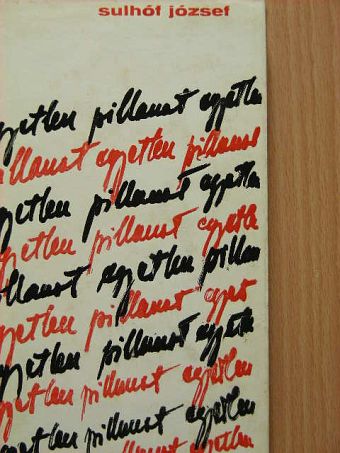 sulhóf józsef
gyetlen pillanat egyetlen
illanat egyetlen pillanat
gyetlen pillanat egyetlen
gyetlen pillanat egyetle
illanat egyetlen pillan
gyetlen pillanat egyet
gyetlen pillanat egyetle
gyetlen pillanat egyetlen
gyetlen pillanat egyetlen
pillanat egyetlen